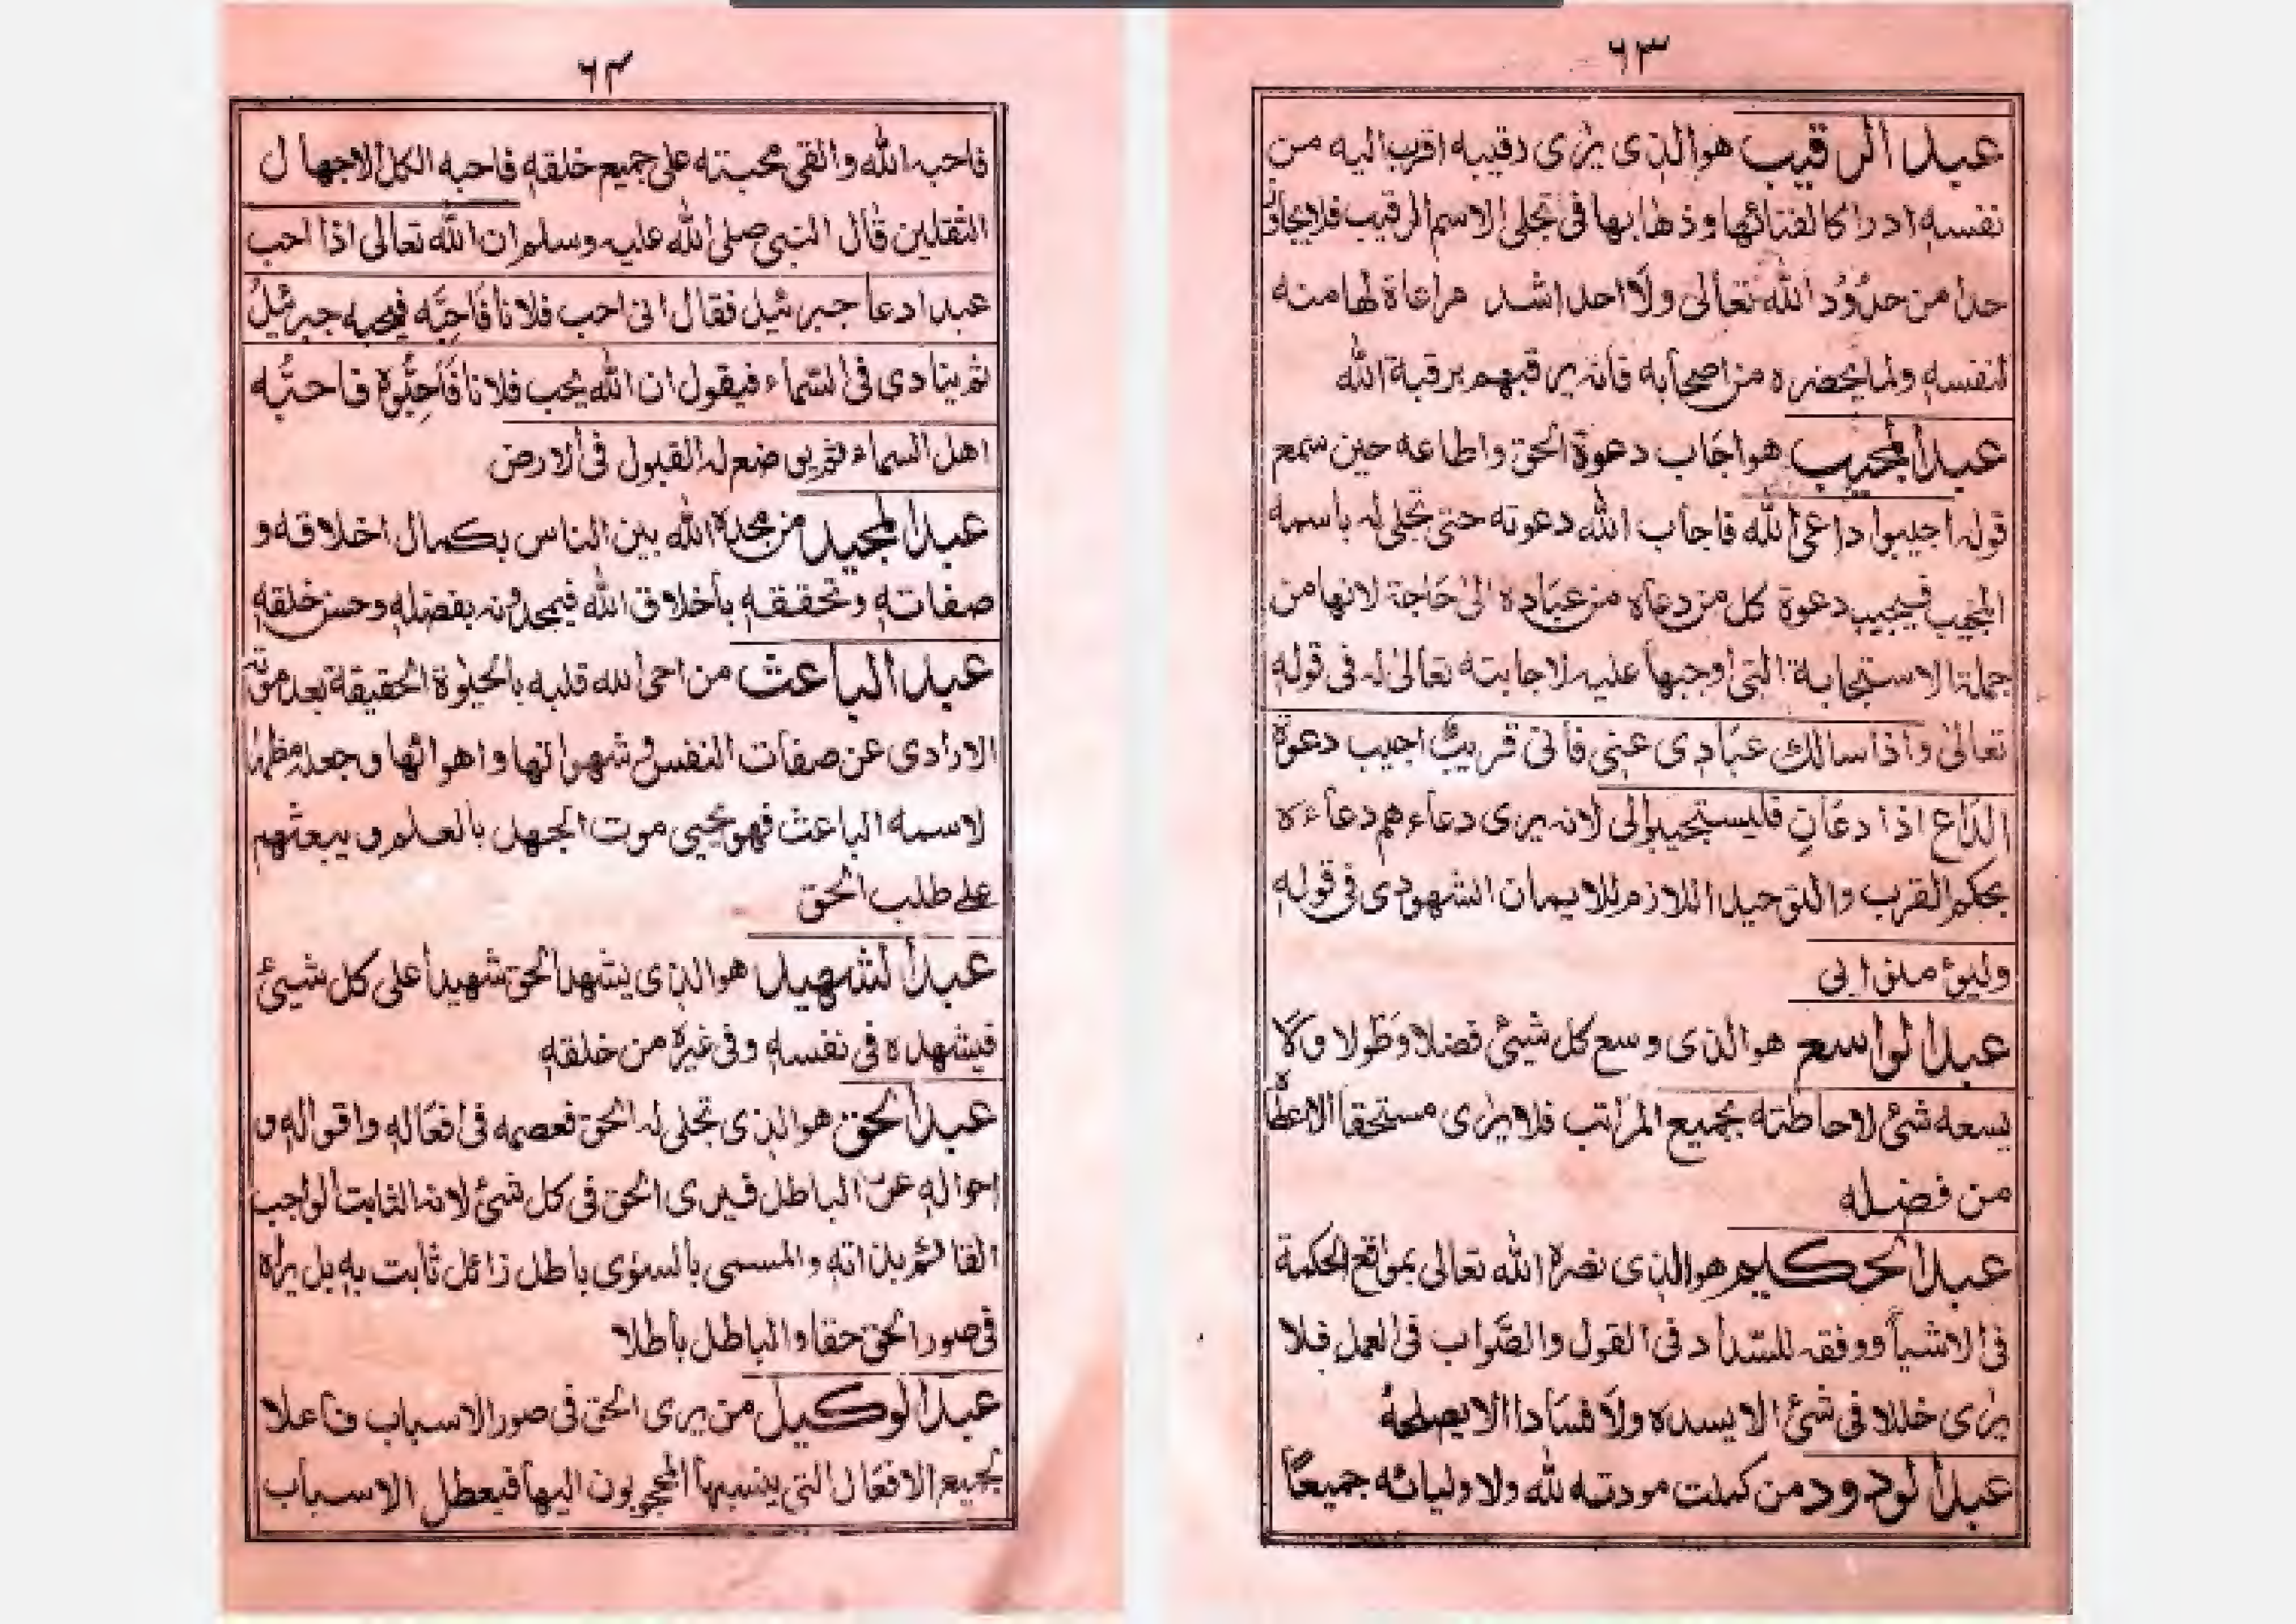 ٦٣
عبد الرقيب هو الذى يرى رقيبه اقرب اليه من
نفسه ادراكا لفنائها وذهابها فى تجلى الاسم الرقيب فلا يجاوز
حدا من حدود الله تعالى ولا احد اشد مراعاة لها منه
لنفسه ولما يحضره من اصحابه فانه يرقبهم برقبة الله
عبد المجيب هو اجاب دعوة الحق واطاعه حين سمع
قوله اجيبوا داعى الله فاجاب الله دعوته حتى تجلى له باسمه
المجيب فيجيب دعوة كل من دعاه من عباده الى حاجة لانها من
جملة الاستجابة التى اوجبها عليه لاجابته تعالى له فى قوله
تعالى واذا سالك عبادى عنى فانى قريب اجيب دعوة
الداع اذا دعان فليستجيبوا لى لانه يرى دعاءهم دعاءه
بحكم القرب والتوحيد اللازم للايمان الشهودى فى قوله
وليؤمنوا بى
عبد الواسع هو الذى وسع كل شيئ فضلا وطولا ولا
يسعه شئ لاحاطته بجميع المراتب فلا يرى مستحقا الا عطا
من فضله
عبد الحكيم هو الذى بصره الله تعالى بمواقع الحكمة
فى الاشيا ووفقه للسداد فى القول والصواب فى العمل فلا
يرى خللا فى شئ الا يسده ولا فسادا الا يصلحه
عبد الودود من كملت مودته لله ولاوليائه جميعا
٦٤
فاحبه الله والقى محبته على جميع خلقه فاحبه الكل الا جهال
الثقلين قال النبى صلى الله عليه وسلم ان الله تعالى اذا احب
عبدا دعا جبرئيل فقال انى احب فلانا فَاَحِبَّه فيحبه جبرئيلُ
ثم ينادى فى السماء فيقول ان الله يحب فلانا فَاَحِبُّوْهُ فاحبُّه
اهل السماء ثم يوضع له القبول فى الارض
عبد المجيد من مجده الله بين الناس بكمال اخلاقه و
صفاته وتحققه باخلاق الله فيمجدونه بفضله وحسن خلقه
عبد الباعث من احى الله قلبه بالحيٰوة الحقيقة بعد موته
الارادى عن صفات النفس وشهواتها واهوائها وجعله مظهرا
لاسمه الباعث فهو يحيى موت الجهل بالعلم و يبعثهم
على طلب الحق
عبد الشهيد هو الذى يشهد الحق شهيدا على كل شيئ
فيشهده فى نفسه وفى غيره من خلقه
عبد الحق هو الذى تجلى له الحق فعصمه فى افعاله واقواله و
احواله عن الباطل فيرى الحق فى كل شئ لانه الثابت الواجب
القائم بذاته والمسمى بالسوى باطل زائل ثابت به بل يراه
فى صور الحق حقا والباطل باطلا
عبد الوكيل من يرى الحق فى صور الاسباب فاعلا
بجميع الافعال التى ينسبها المحجوبون اليها فيعطل الاسباب